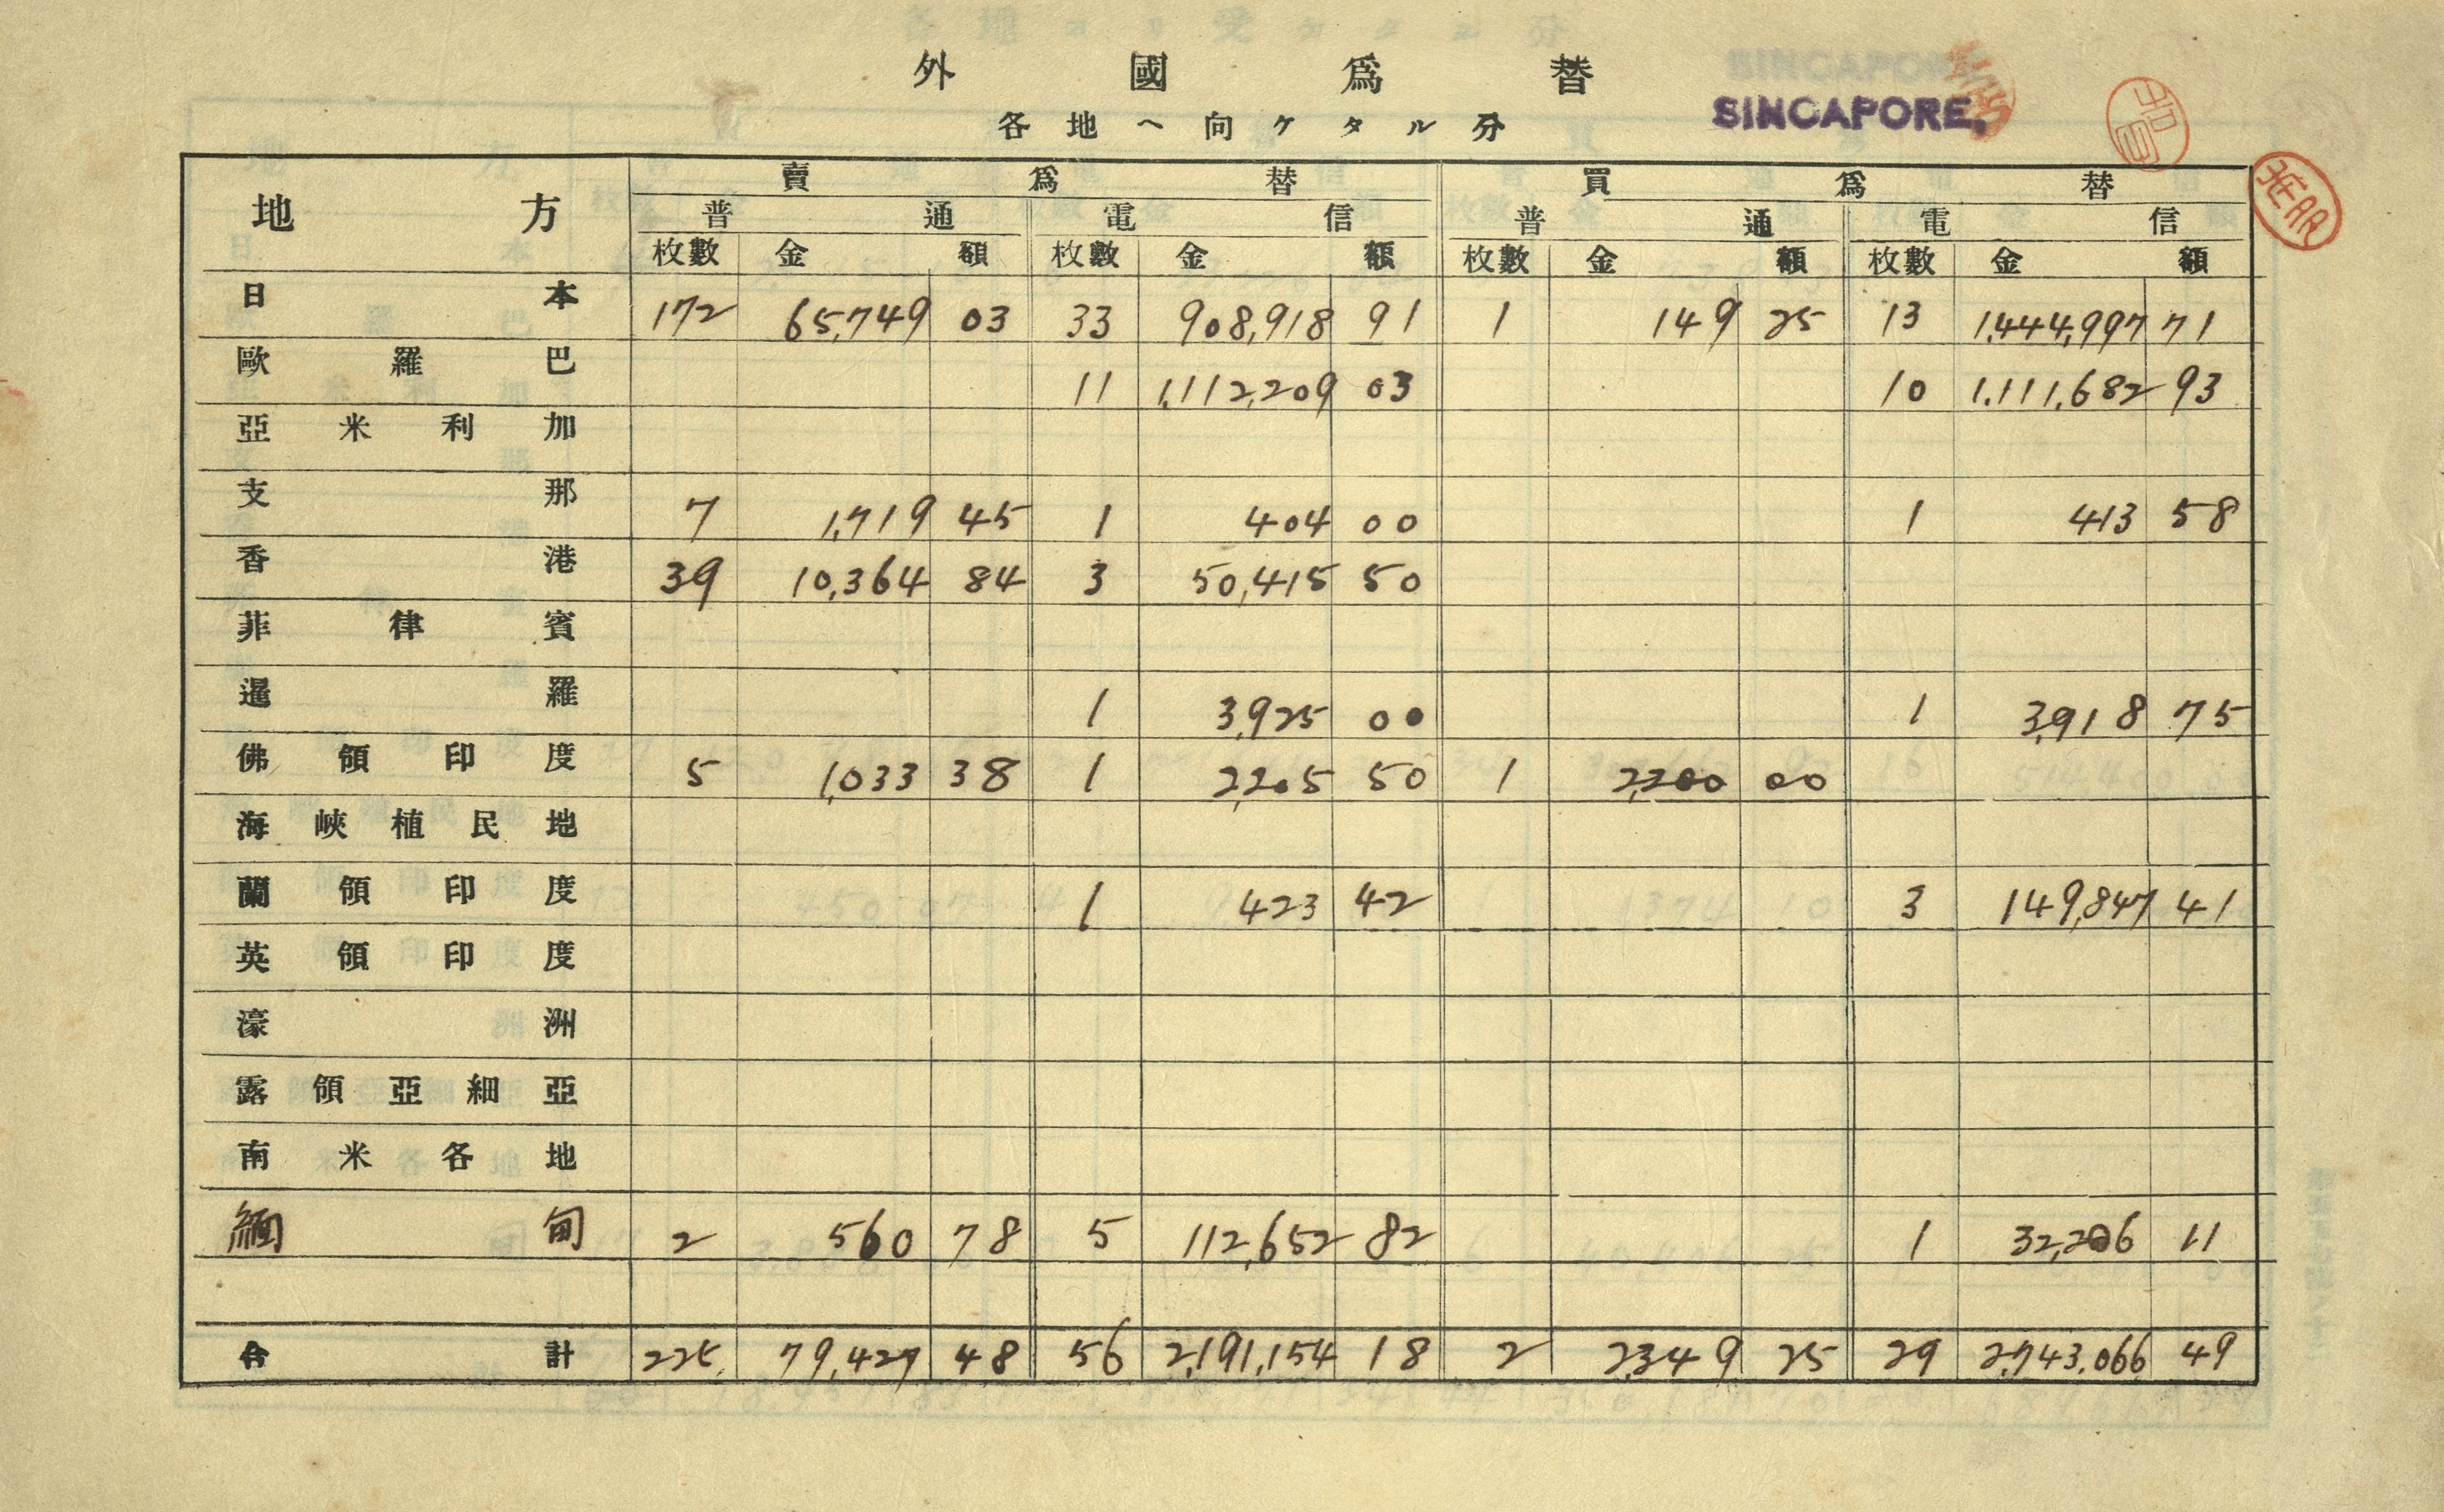 外國爲替
SINGAPORE.
各地ヘ向ケタル分
地方 賣爲替 買爲替
普通 電信 普通 電信
枚數 金額 枚數 金額 枚數 金額 枚數 金額
日本 172 65,749 03 33 908,918 91 1 149 25 13 1,444,997 71
歐羅巴 11 1,112,209 03 10 1,111,682 93
亞米利加
支那 7 1,719 45 1 404 00 1 413 58
香港 39 10,364 84 3 50,415 50
菲律賓
暹羅 1 3,925 00 1 3,918 75
佛領印度 5 1,033 38 1 2,205 50 1 2,200 00
海峽植民地
蘭領印度 1 423 42 3 149,847 41
英領印度
濠洲
露領亞細亞
南米各地
緬甸 2 560 78 5 112,652 82 1 32,206 11
合計 225 79,427 48 56 2,191,154 18 2 2,349 25 29 2,743,066 49